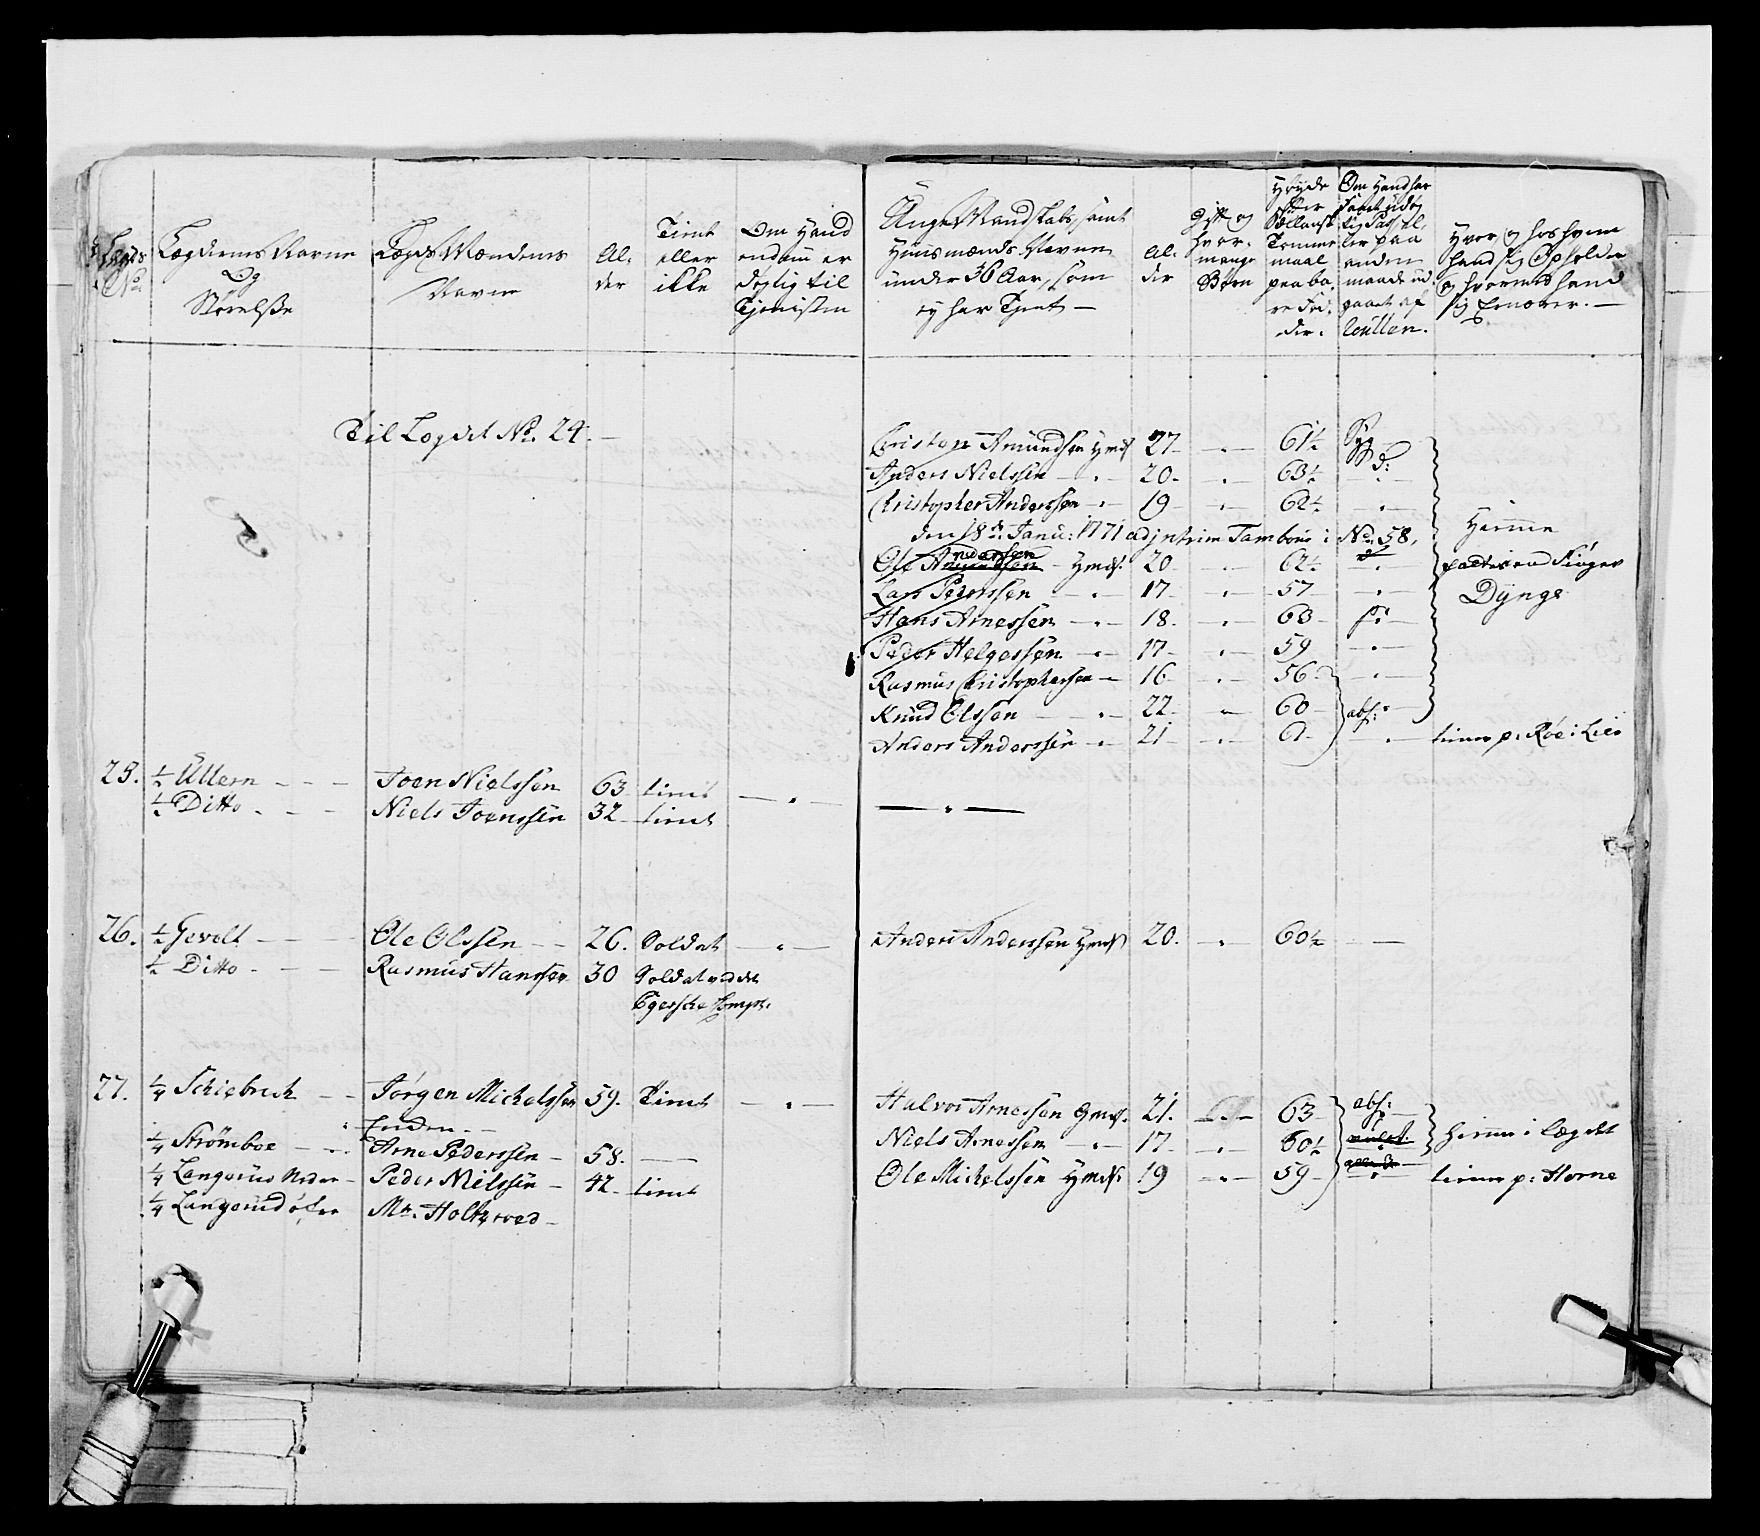 Lægds No.
Lægdens Navne
Og
Størrelse
Lægds Mændenes
Navne
Al-
der
Tient
eller
ikke
Om Hand
endnu er
døglig til
Tienisten
Unge Mandskabs, samt
Huusmænds Navne
under 36 Aar, som
ey har Tient —
Al-
der
Gift og
hvor-
mange
Børn
Høyde
efter
Siællansk
Tomme
maal
paa ba-
re Fød-
der.
Om Hand har
faaet
lig Pas, el-
ler paa
anden
maade ud-
gaaet af
Roullen.
Hvor og hos hvem
hand sig Opholder
og hvormed hand
sig Ernærer. —
Til Legdet No. 24. —
Christen Amundsen Hmd 27 — " — 61 1/2 Syg
Anders Nielssen — " — 20 — " — 63 1/2 — " —
Christopher Anderssen — " — 19 — " — 62 1/2 — " —
den 18de Janu: 1771 ad interim Tambour i No. 58.
Ole Amundsen Anderssen — Hmds: 20 — " — 62 1/2 — " —
Lars Pederssen — " — 17 — " — 57 — " —
Hans Arnessen — " — 18 — " — 63
Peder Helgessen — " — 17 — " — 59 — " —
Rasmus Christophersen — 16 — " — 56 — " —
Knud Olssen — " — 22 — " — 60 abs: —
Anders Anderssen — " — 21 — " — 61 — " — tiener p: Røe i Lier
Hiemme
Dynge
25. 1/2 Ullern — — — Joen Nielssen 63 tient — " —
1/2 Ditto — — — Niels Joenssen 32 tient
— " —
26. 1/2 Gevelt — — — Ole Olssen — — 26. Soldat — " — Anders Anderssen Hmds 20. — " — 60 1/2 — —
1/2 Ditto — — — Rasmus Hanssen 30 Soldat ved det
Egerske Comp:
27. 1/4 Schiebrech — — Jørgen Michelssen 59. Tient — " — Halvor Arnessen Gmds. 21. — 63 abs:
Enden —
1/4 Strømboe — — Arne Pederssen — 58. — Niels Arnessen — " — 17 — " — 60 1/2 hiemme i Lægdet
1/4 Langerud Neder — Peder Nielssen — 42 tient Ole Michelssen Hmds: 19 — " — 59 — tiener p: Horne
1/4 Langerud øfre Mr. Holtzwed —